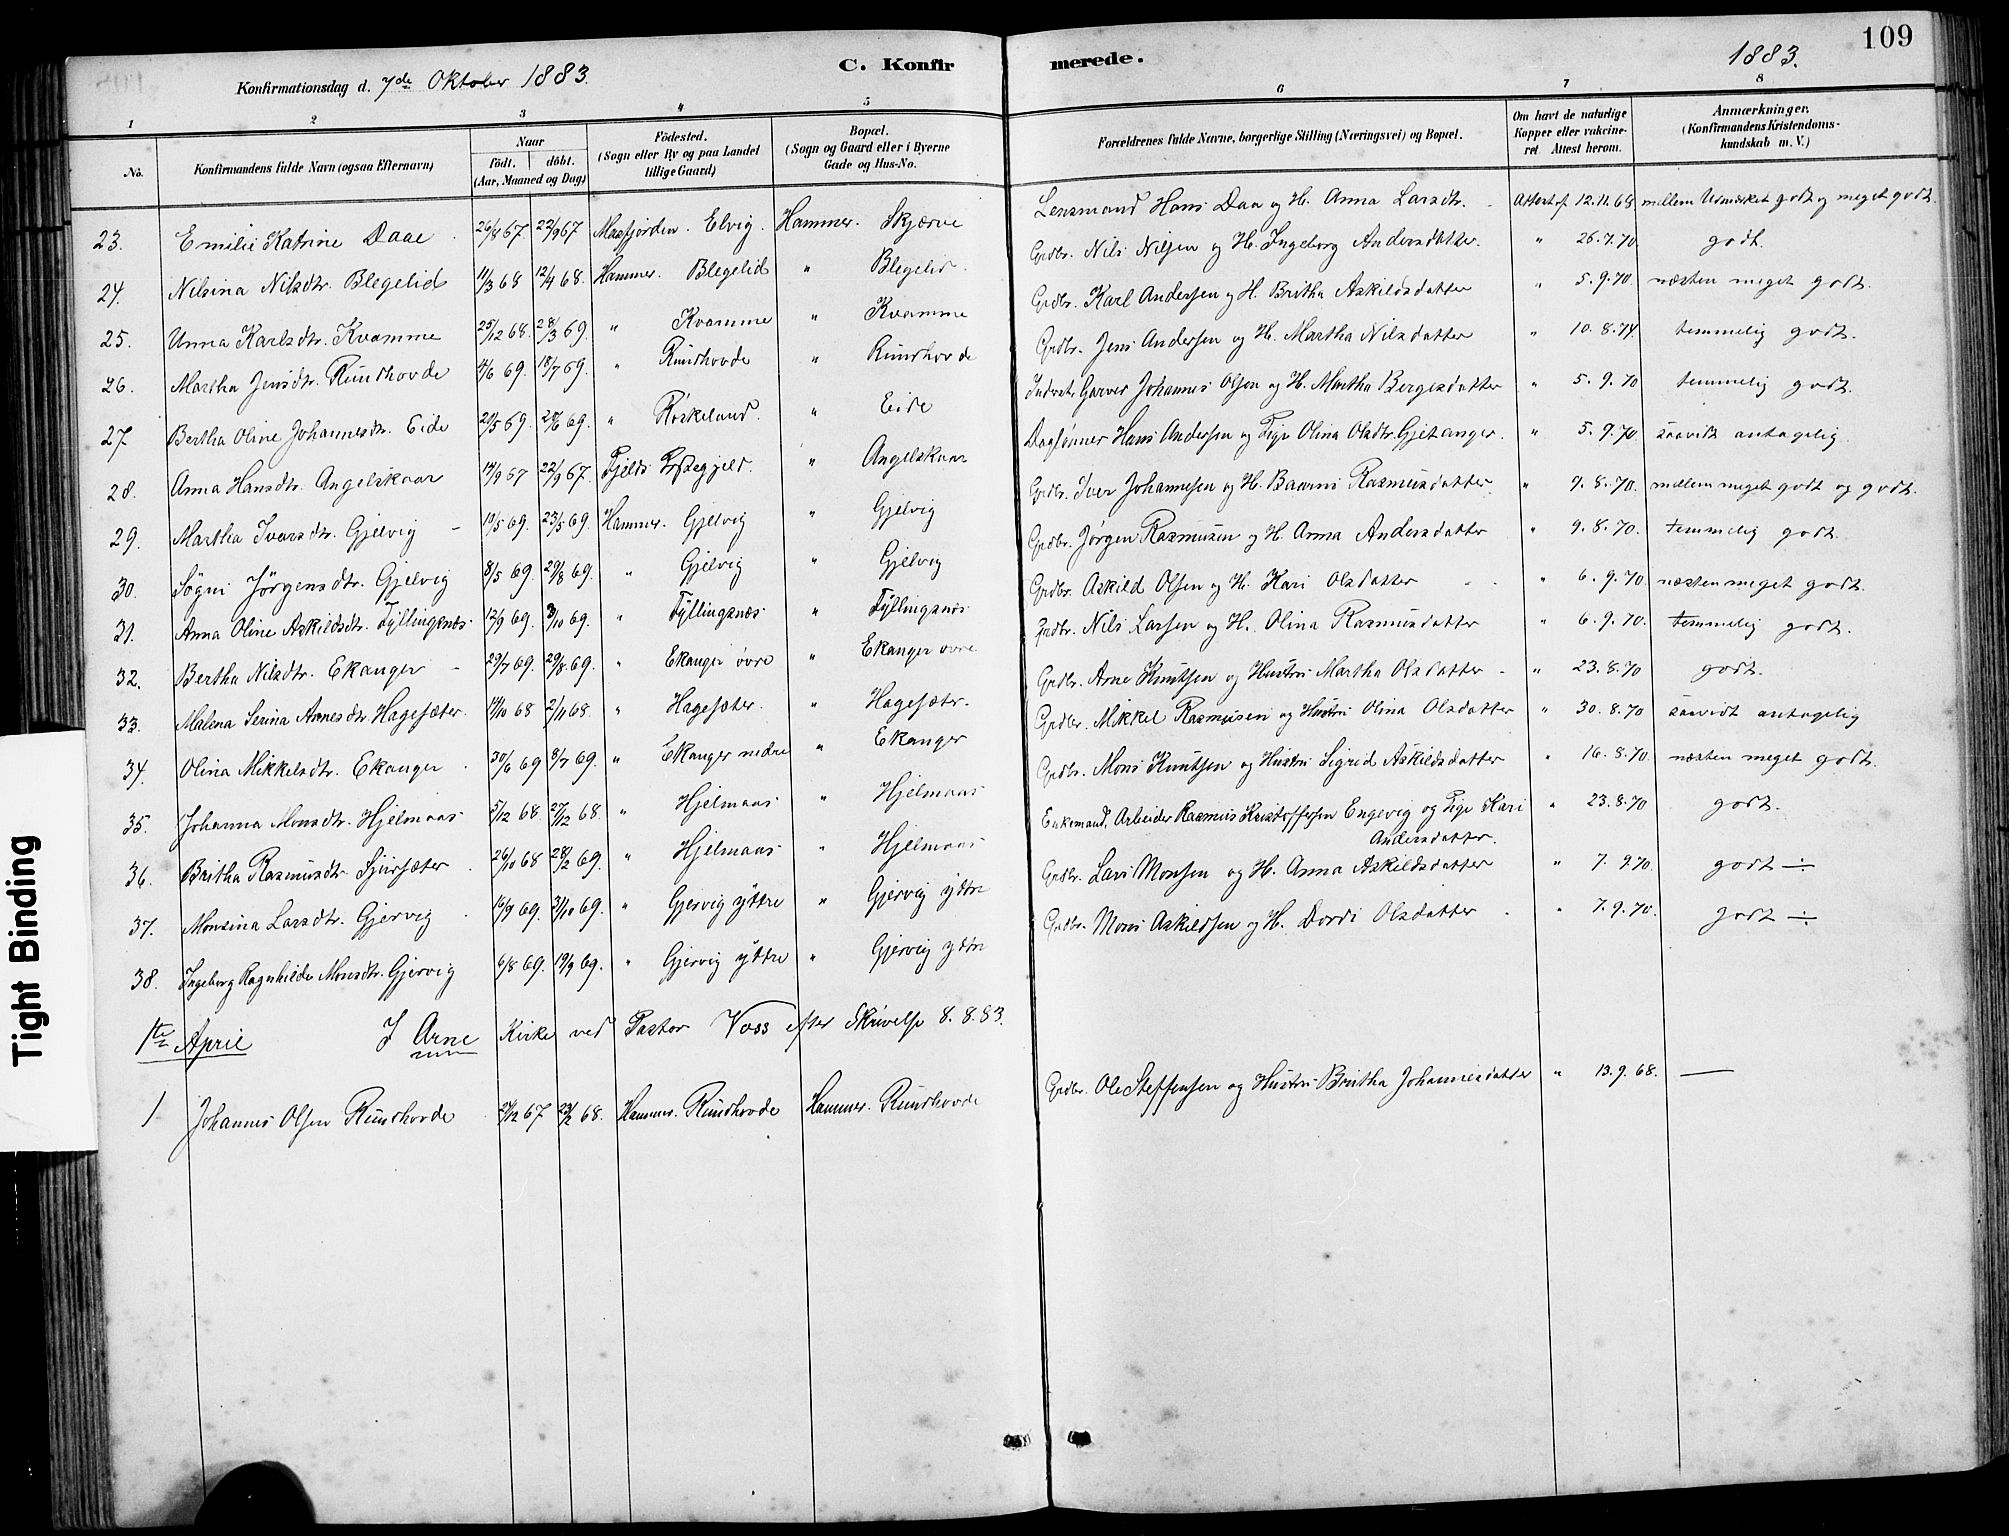 109
1883.
Konfirmationsdag d. 7de Oktober 1883.
C. Konfirmerede.
1 2 3 4 5 6 7 8
No.
Konfirmandens fulde Navn (ogsaa Efternavn)
Naar
födt. döbt.
(Aar, Maaned og Dag)
Födested.
(Sogn eller By og paa Landet
tillige Gaard)
Bopæl.
(Sogn og Gaard eller i Byerne
Gade og Hus-No.
Forældrenes fulde Navne, borgerlige Stilling (Næringsvei) og Bopæl.
Om havt de naturlige
Kopper eller vakcine-
ret Attest herom.
Anmærkninger.
(Konfirmandens Kristendoms-
kundskab m. V.)
23. Emilie Katrine Daae 26/8 67 22/9 67 Masfjorden. Elvig. Hammer. Skjærve Lensmand Hans Daa og H. Anna Larsdtr. Attest af 12.11.68 mellem Udmærket godt og meget godt.
24. Nilsina Nilsdtr. Blegelid 11/3 68 12/4 68. Hammer. Blegelid " Blegelid Grdbr. Nils Nilsen og H. Ingeborg Andersdatter. " 26.7.70. godt.
25. Unna Karlsdtr. Kvamme 25/12 68 28/3 69. " Kvamme " Kvamme Grdbr. Karl Andersen og H. Britha Askildsdatter " 5.9.70. næsten meget godt.
26. Martha Jensdtr. Rundhovde 4/6 69. 18/7 69. " Rundhovde " Rundhovde Grdbr. Jens Andersen og H. Martha Nilsdatter " 10.8.74. temmelig godt.
27 Bertha Oline Johannesdtr. Eide 20/5 69. 20/6 69. " Röskeland. " Eide Indvst. Garver Johannes Olsen og H. Martha Bergesdatter " 5.9.70 temmelig godt.
28. Anna Hansdtr. Angelskaar 14/9 67 22/9 67. Fjelds Præstegjeld. " Angelskaar Daglønner Hans Andersen og Pige Olina Olsdtr. Gjetanger. " 5.9.70. saavidt antagelig.
29. Martha Iversdtr. Gjelvig 10/5 69. 23/5 69. Hammer. Gjelvig " Gjelvig Grdbr. Iver Johannesen og H. Baarni Rasmusdatter. " 9.8.70. mellem meget godt og godt.
30. Søgni Jørgensdtr. Gjelvig 8/5 69. 29/8 69. " Gjelvig " Gjelvig Grdbr. Jørgen Rasmusen og H. Anna Andersdatter " 9.8.70. temmelig godt.
31. Anna Oline Askildsdtr. Tyllingsnæs 12/9 69. 3/10 69. " Tyllingsnæs " Tyllingsnæs Grdbr. Askild Olsen og H. Kari Olsdatter " 6.9.70. næsten meget godt.
32. Bertha Nilsdtr. Ekanger 29/7 69. 29/8 69. " Ekanger övre " Ekanger övre Grdbr. Nils Larsen og H. Olina Rasmusdatter " 6.9.70. temmelig godt.
33. Malena Serina Arnesdtr. Hagesæter. 14/10 68 2/11 68. " Hagesæter. " Hagesætr. Grdbr. Arne Knutsen og Hustru Martha Olsdatter " 23.8.70 godt.
34. Olina Mikkelsdtr. Ekanger 30/6 69 8/7 69. " Ekanger nedre " Ekanger Grdbr. Mikkel Rasmusen og Hustru Olina Olsdatter " 30.8.70 saavidt antagelig
35. Johanna Monsdtr. Hjelmaas 5/12 68 27/12 68. " Hjelmaas " Hjelmaas Grdbr. Mons Knutsen og Hustru Sigrid Askildsdatter " 16.8.70 næsten meget godt.
36. Britha Rasmusdtr. Sjursæter 26/10 68 28/2 69. " Hjelmaas " Hjelmaas Enkemand, Arbeider Rasmus Kristoffersen Engevig og Pige Kari " 23.8.70 godt.
Andersdatter.
37. Monsina Larsdtr. Gjervig 16/9 69. 31/10 69. " Gjervig yttre " Gjervig yttre Grdbr. Lars Monsen og H. Anna Askildsdatter " 7.9.70. godt ÷
38. Ingeborg Ragnhilde Monsdtr. Gjervig 6/8 69. 19/9 69. " Gjervig yttre " Gjervig yttre Grdbr. Mons Askildsen og H. Dordi Olsdatter " 7.9.70. godt ÷
1ste April I Arne Kirke ved Pastor Voss efter Skrivelse 8.8.83.
1 Johannes Olsen Rundhovde 21/12 67 23/2 68. Hammer. Rundhovde Hammer. Rundhovde Grdbr. Ole Steffensen og Hustru Britha Johannesdatter " 13.9.68. —
Tight Binding